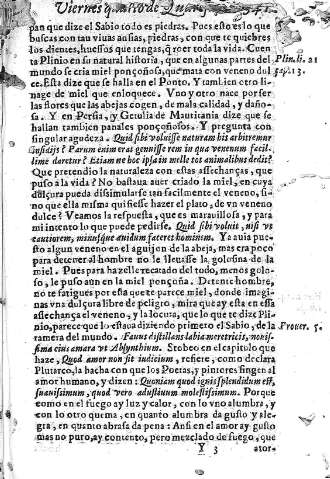 Viernes quarto de Quaresma. 341
pan que dize el Sabio todo es piedras. Pues esto es lo que
buscas con tau viuas ansias, piedras, con que te quiebres
los dientes, huessos que tengas, q̃ roer toda la vida. Cuen
ta Plinio en su natural historia, que en algunas partes del
mundo se cria miel ponçoñosa, que mata con veneno dul
ce. Esta dize que se halla en el Ponto. Y tambien otro li-
nage de miel que enloquece. Vno y otro nace por ser
las flores que las abejas cogen, de mala calidad, y daño-
sa. Y en Persia, y Getulia de Mauritania dize que se
hallan tambien panales ponçoñosos. Y pregunta con
singular agudeza. Quid sibi voluisse naturam his arbitremur
insidijs? Parum enim erat genuisse rem in qua venenum facil-
lime daretur? Etiam ne hoc ipsa in melle tot animalibus dedit?
Que pretendio la naturaleza con estas assechanças, que
puso a la vida? No bastaua auer criado la miel, en cuya
dulçura pueda dissimularse tan facilmente el veneno, si-
no que ella misma quisiesse hazer el plato, de vn veneno
dulce? Veamos la respuesta, que es marauillosa, y para
mi intento lo que puede pedirse. Quid sibi voluit, nisi vt
cautiorem, minusque auidum faceret hominem. Ya auia pue-
sto algun veneno en el aguijon de la abeja, mas era poco
para detener al hombre no le lleuasse la golosina de la
miel. Pues para hazelle recatado del todo, menos golo-
so, le puso aun en la miel ponçoña. Detente hombre,
no te fatigues por esta que te parece miel, donde imagi-
nas vna dulçura libre de peligro, mira que ay esta en essa
assechança el veneno, y la locura, que lo que te dize Pli-
nio, parece que lo estaua diziendo primero el Sabio, de la
ramera del mundo. Fauus distillans labia meretricis, nouis-
sima eius amara vt Absynthium. Stobeo en el capitulo que
haze, Quod amor non sit iudicium, refiere, como declara
Plutarco, la hacha con que los Poetas, y pintores fingen al
amor humano, y dizen: Quoniam quod ignis splendidum est,
suauissimum, quod vero adustiuum molestissimum. Porque
como en el fuego ay luz y calor, con lo vno alumbra, y
con lo otro quema, en quanto alumbra da gusto y ale-
gra, en quanto abrasa da pena: Ansi en el amor ay gusto
mas no puro, ay contento, pero mezclado de fuego, que
Y 3 ator-
Plin. li. 21
c. 13.
Prouer. 5.